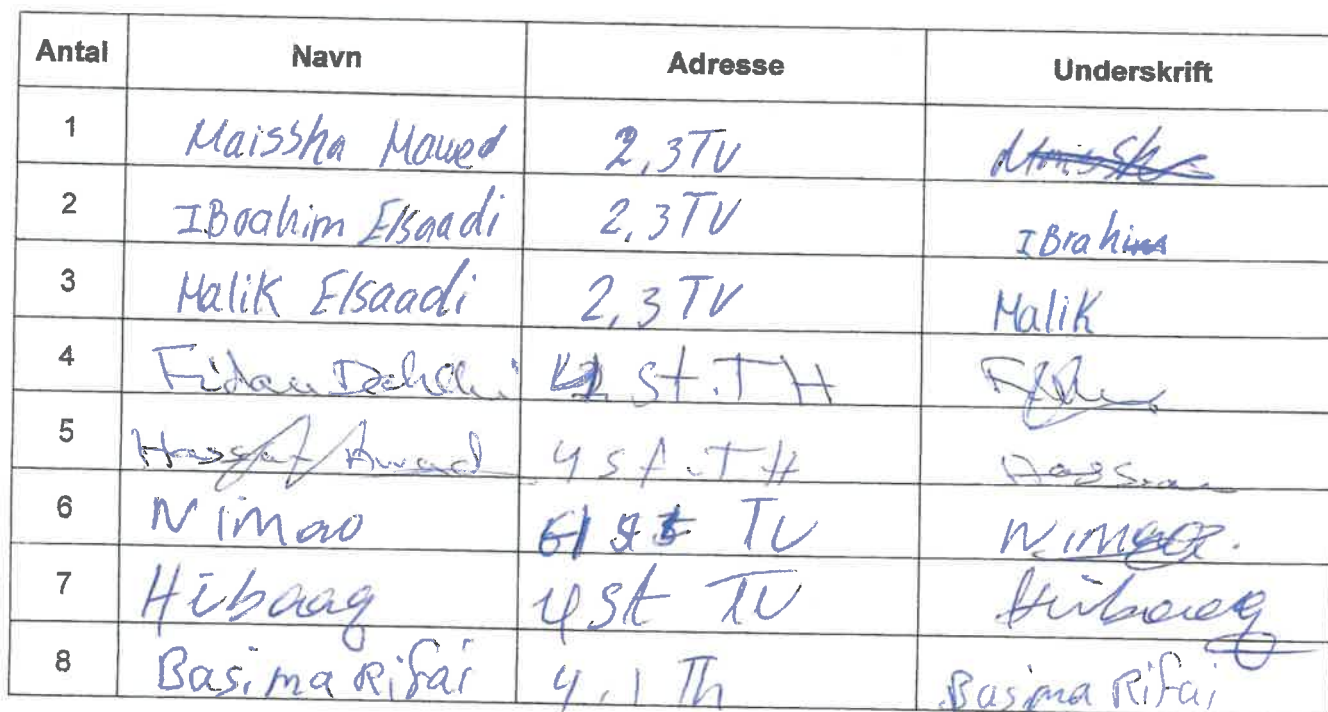 Antal Navn Adresse Underskrift
1 Maissha Mawed 2,3 TV
2 IBrahim Elsaadi 2,3 TV IBrahim
3 Malik Elsaadi 2,3 TV Malik
4 Fidan St. TH
5 Awad 4 St. TH Hassan
6 Nimao St TV Nimao
7 Hibaaq 4 St TV Hibaaq
8 Basima Rifai 4,1 Th Basima Rifai